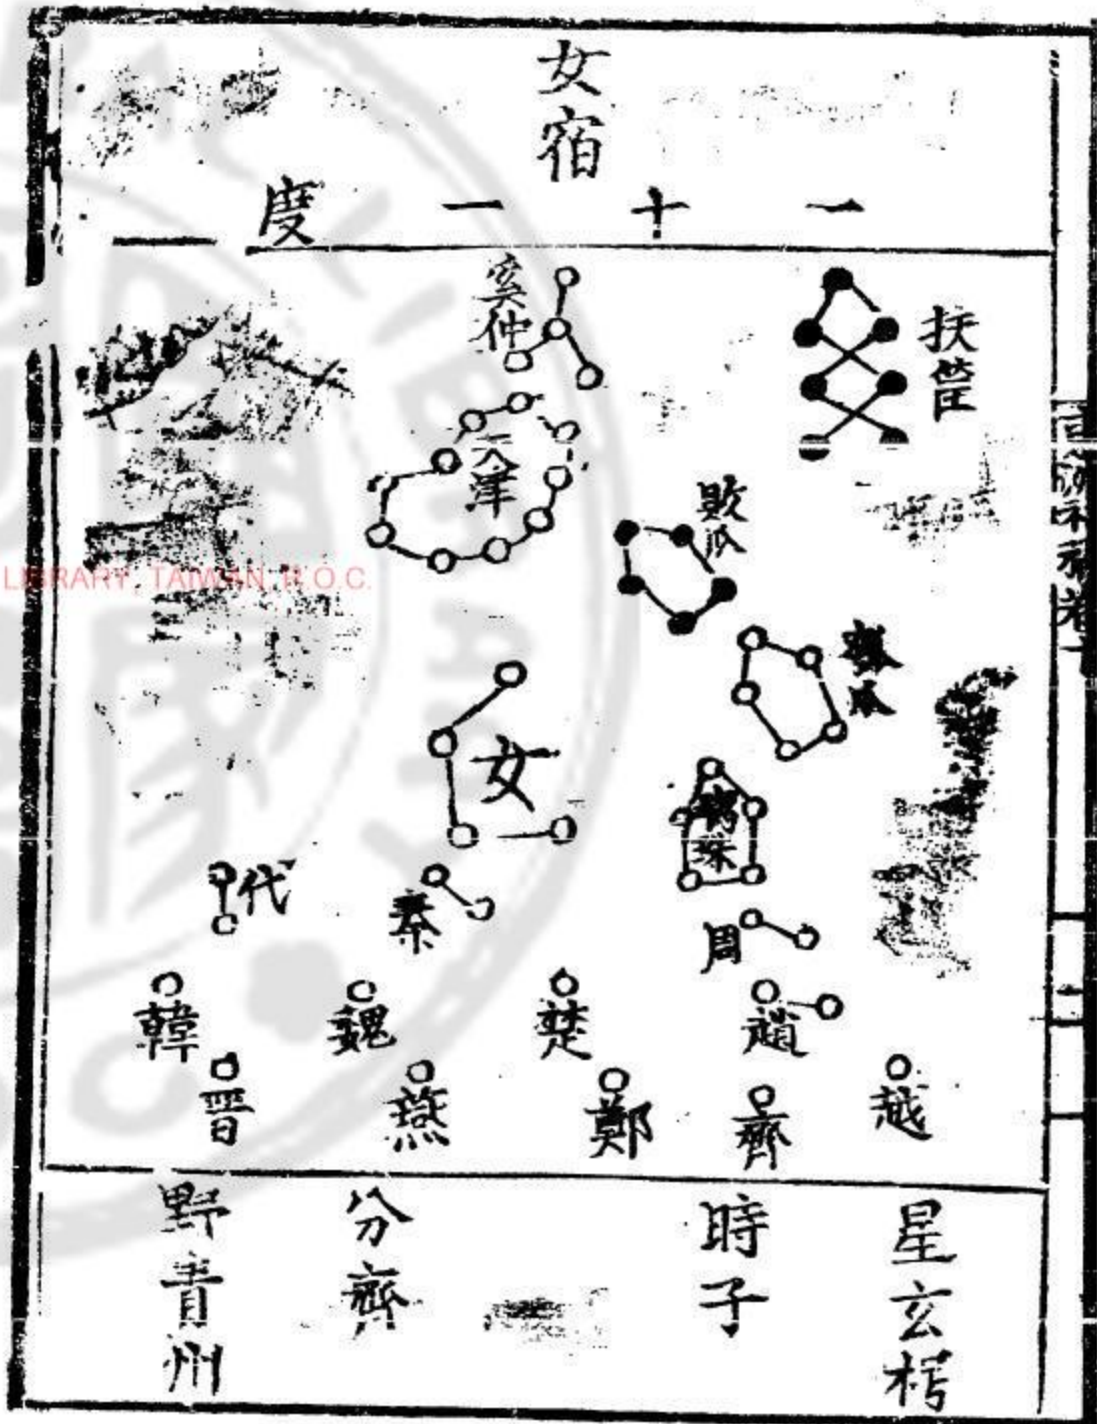 女宿
一十一度
扶筐
奚仲
天津
敗瓜
瓜
女
珠
代
秦
周
韓
魏
楚
趙
晋
燕
鄭
齊
越
星玄枵
時子
分齊
野青州
LIBRARY, TAIWAN, R.O.C.